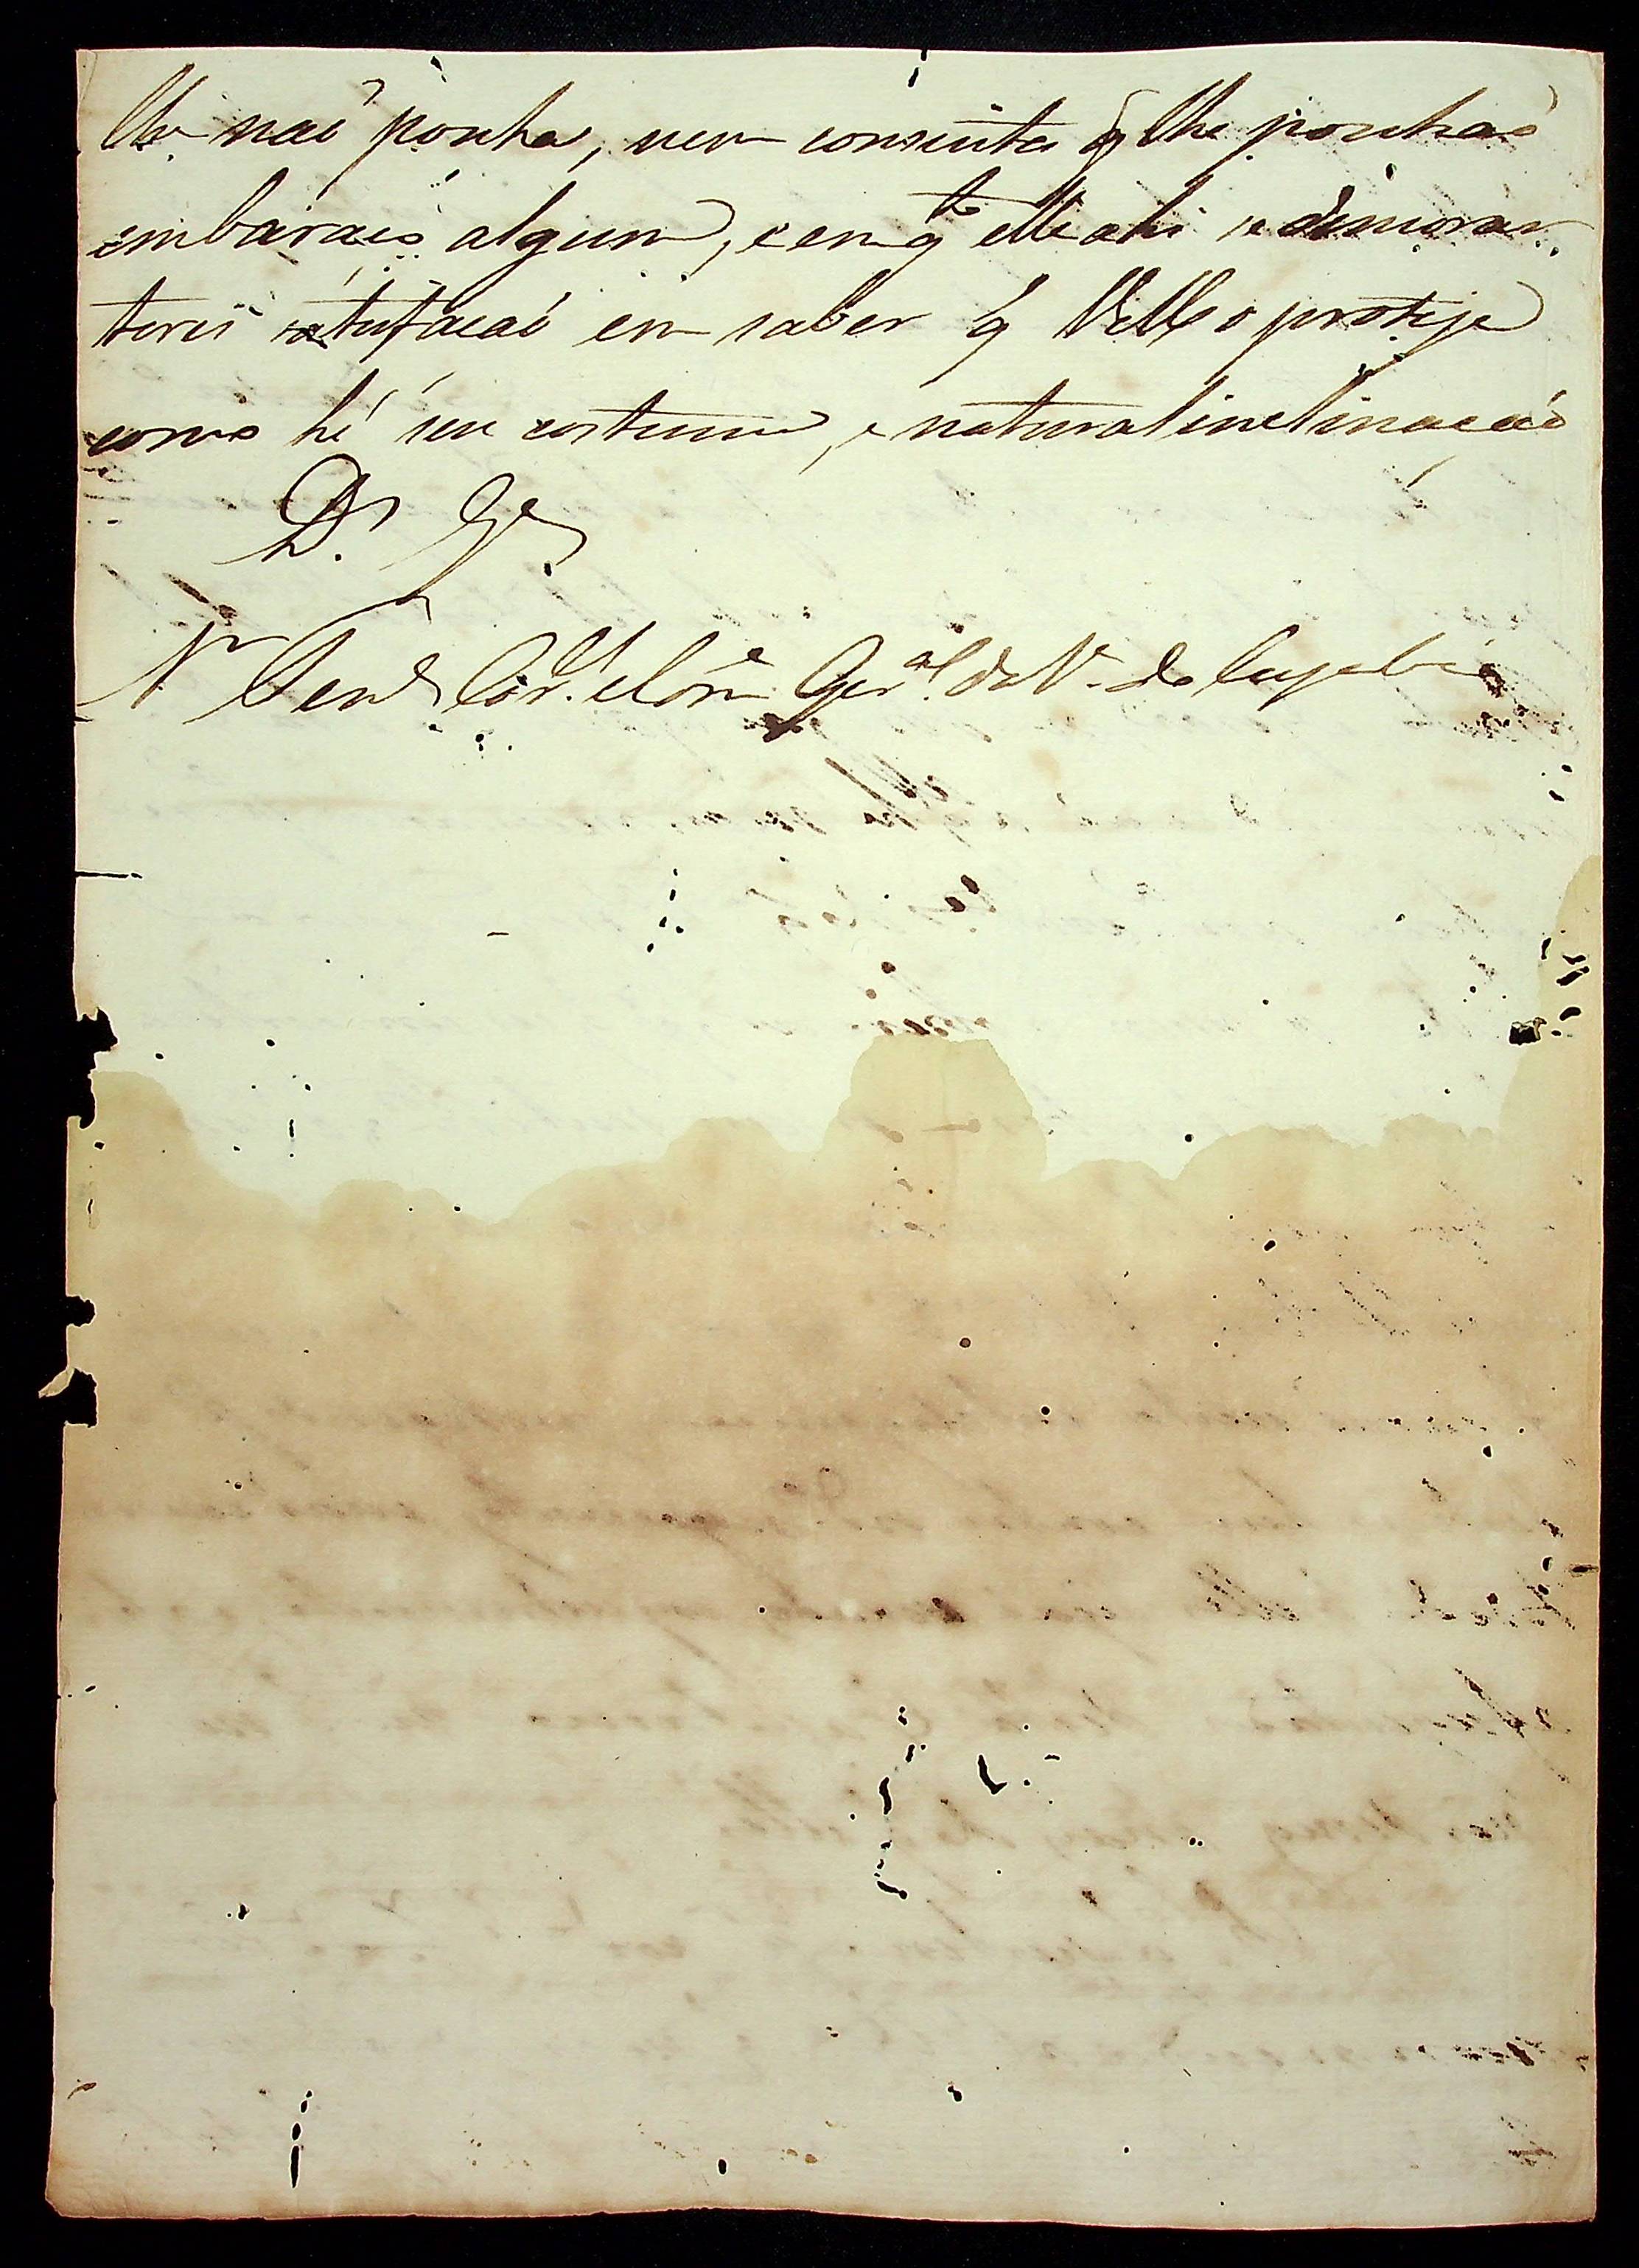 lhe naõ ponha, nem consinta q̃ lhe ponhaõ
embaraço algum, e em q.to elle ahi se demorar
terei satisfacaõ em saber q̃ VM.ce o proteje
como hé seu costume, e natural inclinacaõ
D.s G.e
Snr. Ten.e Cor.el Com.e Ger.al da V.a do Cuyabá